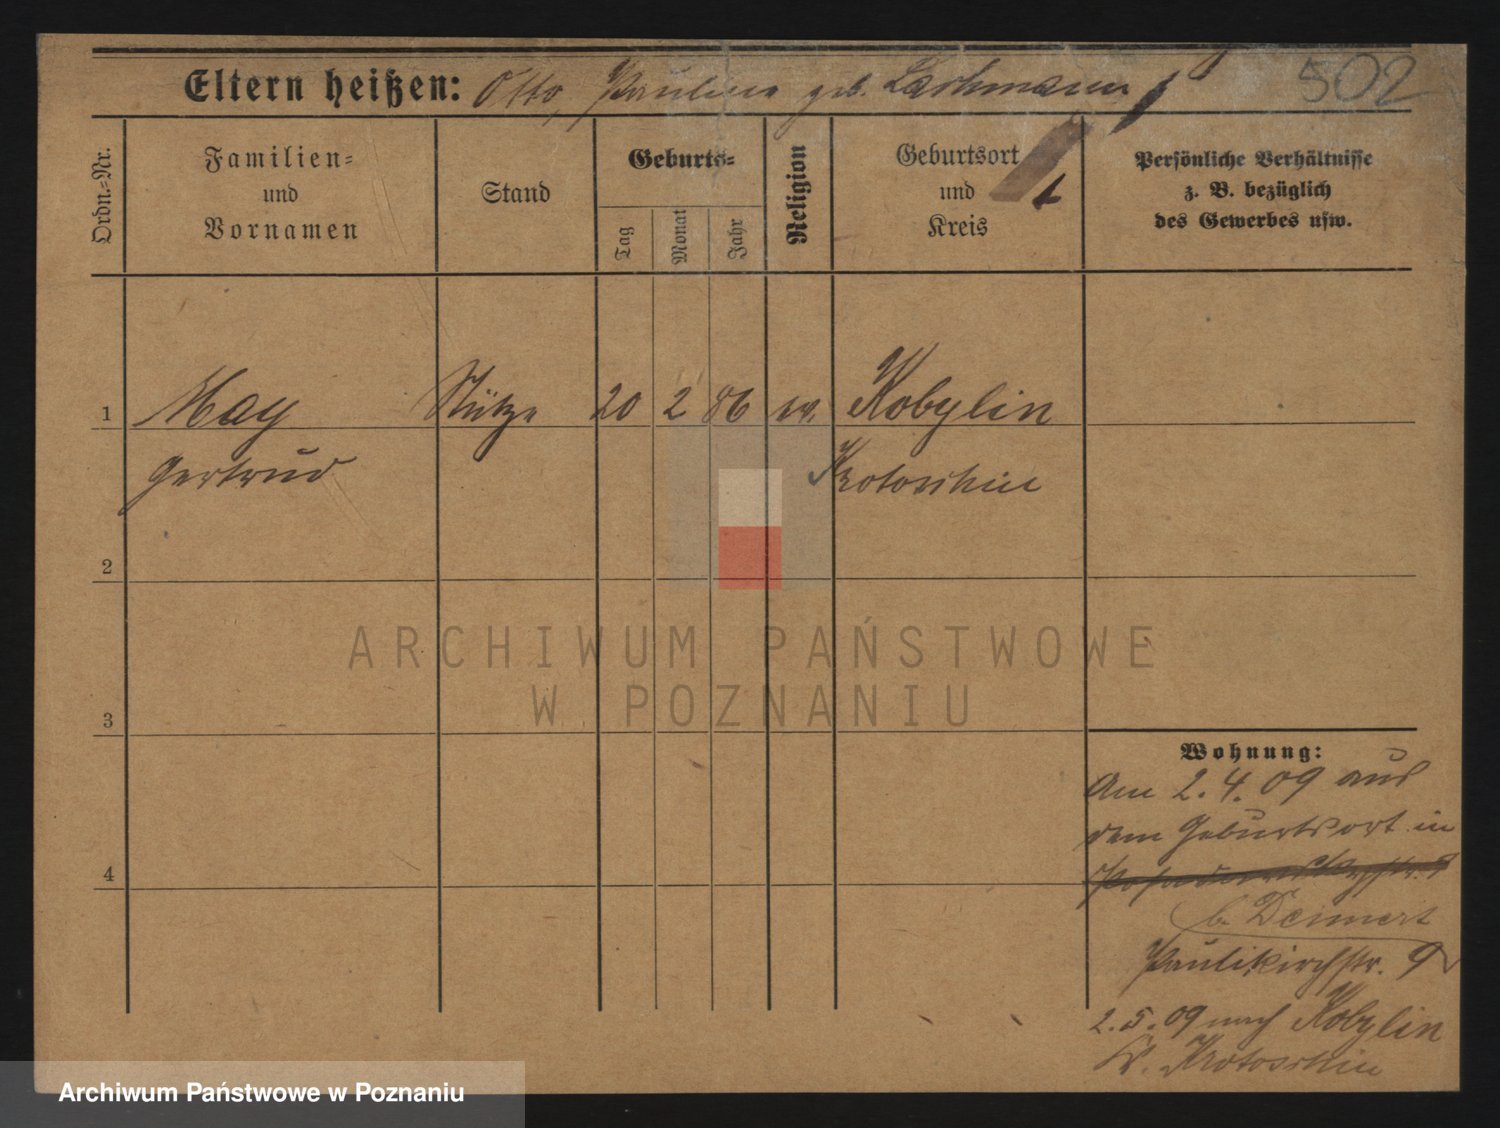 502
Eltern heißen: Otto, Pauline geb. Lachmann
Ordn.=Nr.
Familien=
und
Vornamen
Stand
Geburts=
Tag
Monat
Jahr
Religion
Geburtsort
und
Kreis
Persönliche Verhältnisse
z. B. bezüglich
des Gewerbes usw.
1 May Stütze 20 2 86 ev. Kobylin
Gertrud Krotoschin
2
3
4
ARCHIWUM PAŃSTWOWE
W POZNANIU
Wohnung:
Am 2.4.09 aus
dem Geburtsort in
b. Deinert
Paulikirchstr. 9
2.5.09 nach Kobylin
Kr. Krotoschin
Archiwum Państwowe w Poznaniu